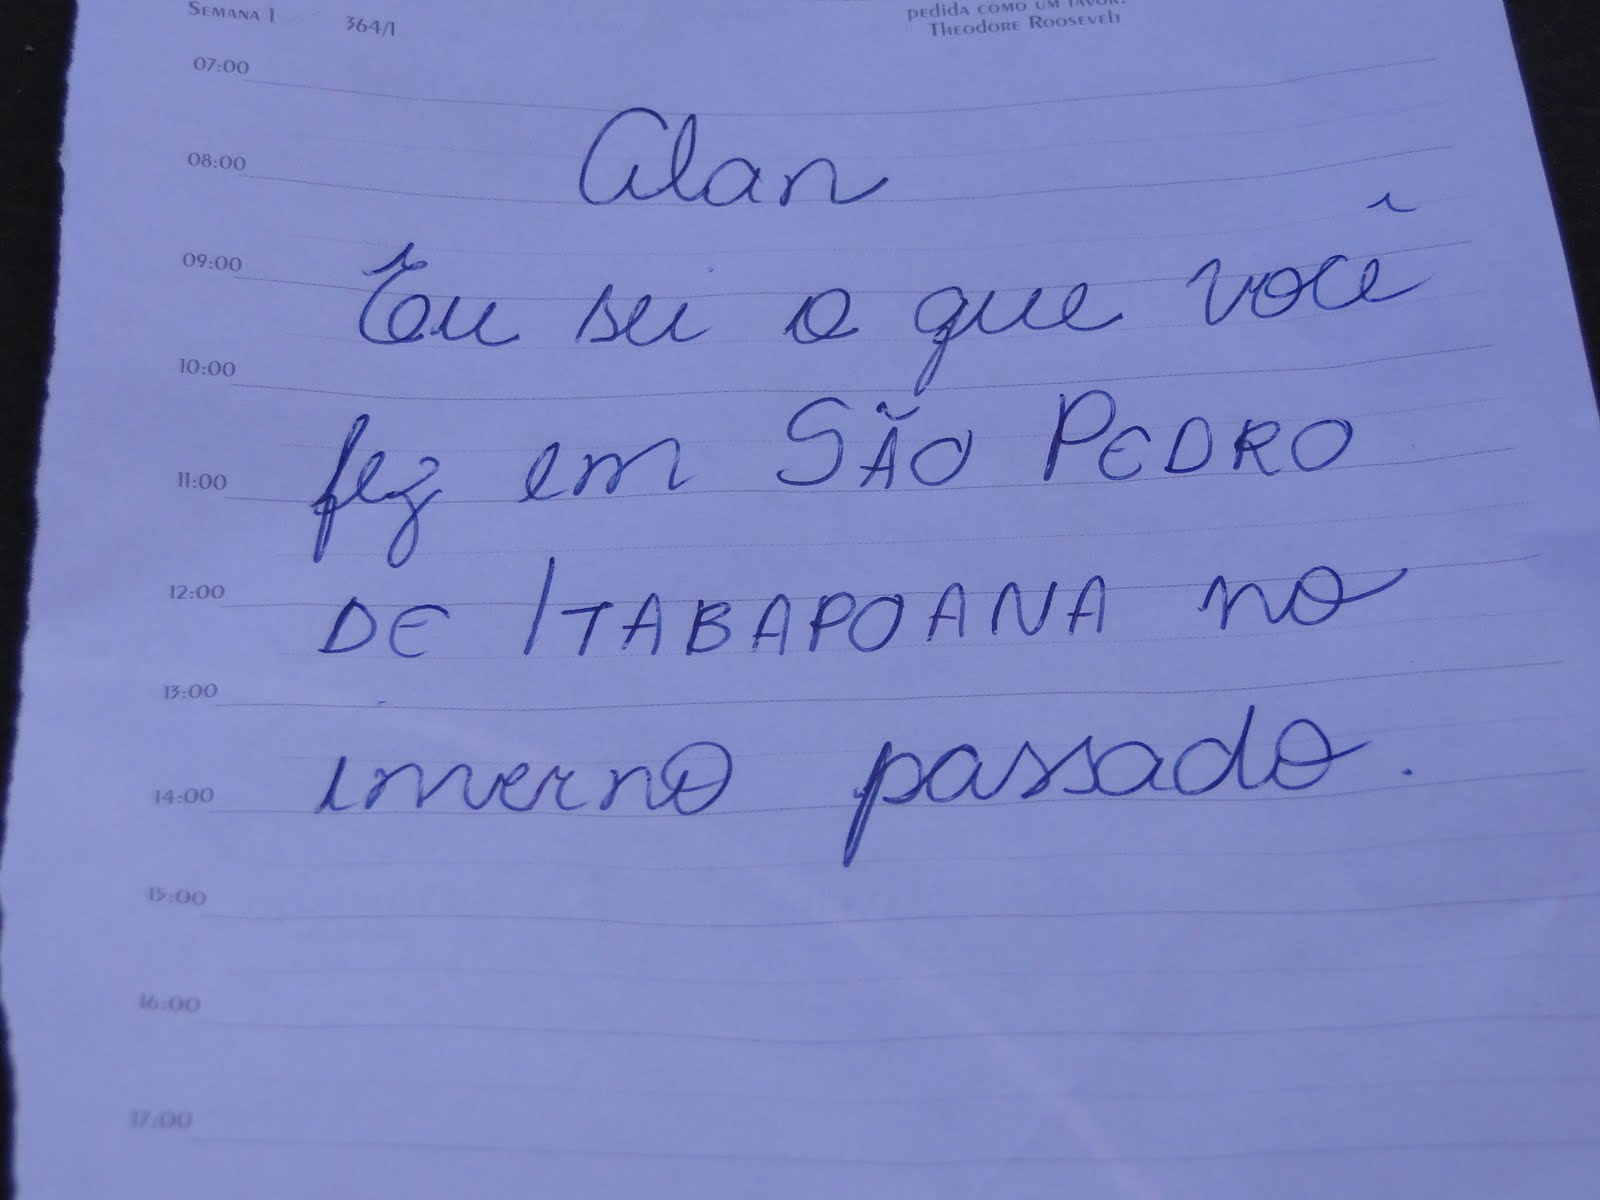 SEMANA 1 364/1
PEDIDA COMO UM FAVOR.
THEODORE ROOSEVELT
07:00
Alan
08:00
Eu sei o que você
09:00
10:00
fez em SÃO PEDRO
11:00
DE ITABAPOANA no
12:00
13:00
inverno passado.
14:00
15:00
16:00
17:00